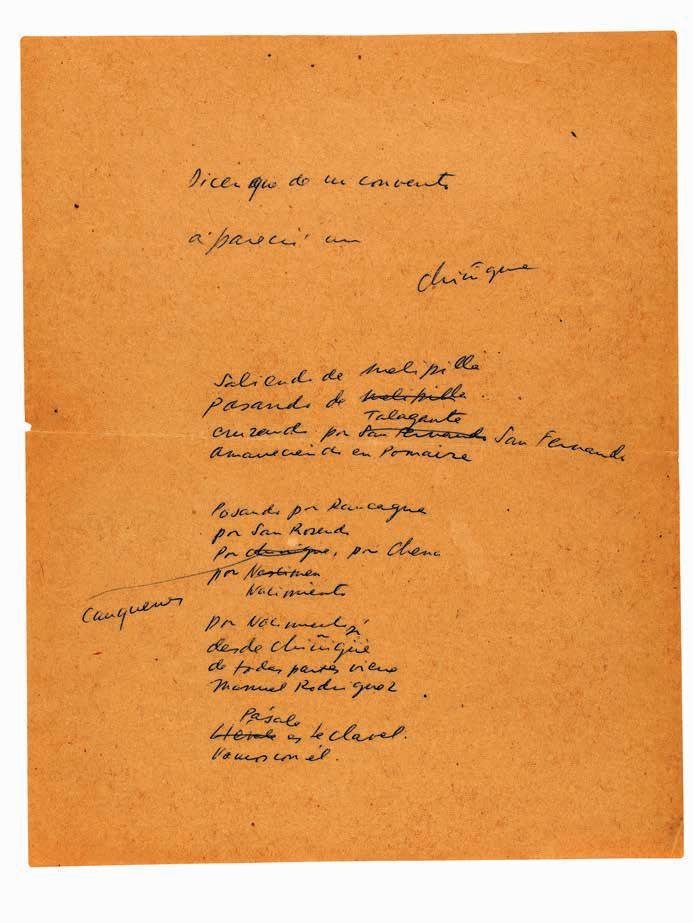 Dicen que de un convento
apareció un
chiñigue
Saliendo de Melipilla
pasando de Melipilla.
Talagante
cruzando por San Fernando San Fernando
amaneciendo en Pomaire
Pasando por Rancagua
por San Rosendo
Por chiñigue, por Chena
por Nacimien
Nacimiento
Cauquenes
por Nacimiento, sí
desde Chiñigüe
de todas partes viene
Manuel Rodriguez
Pásale
este clavel.
Vamos con él.